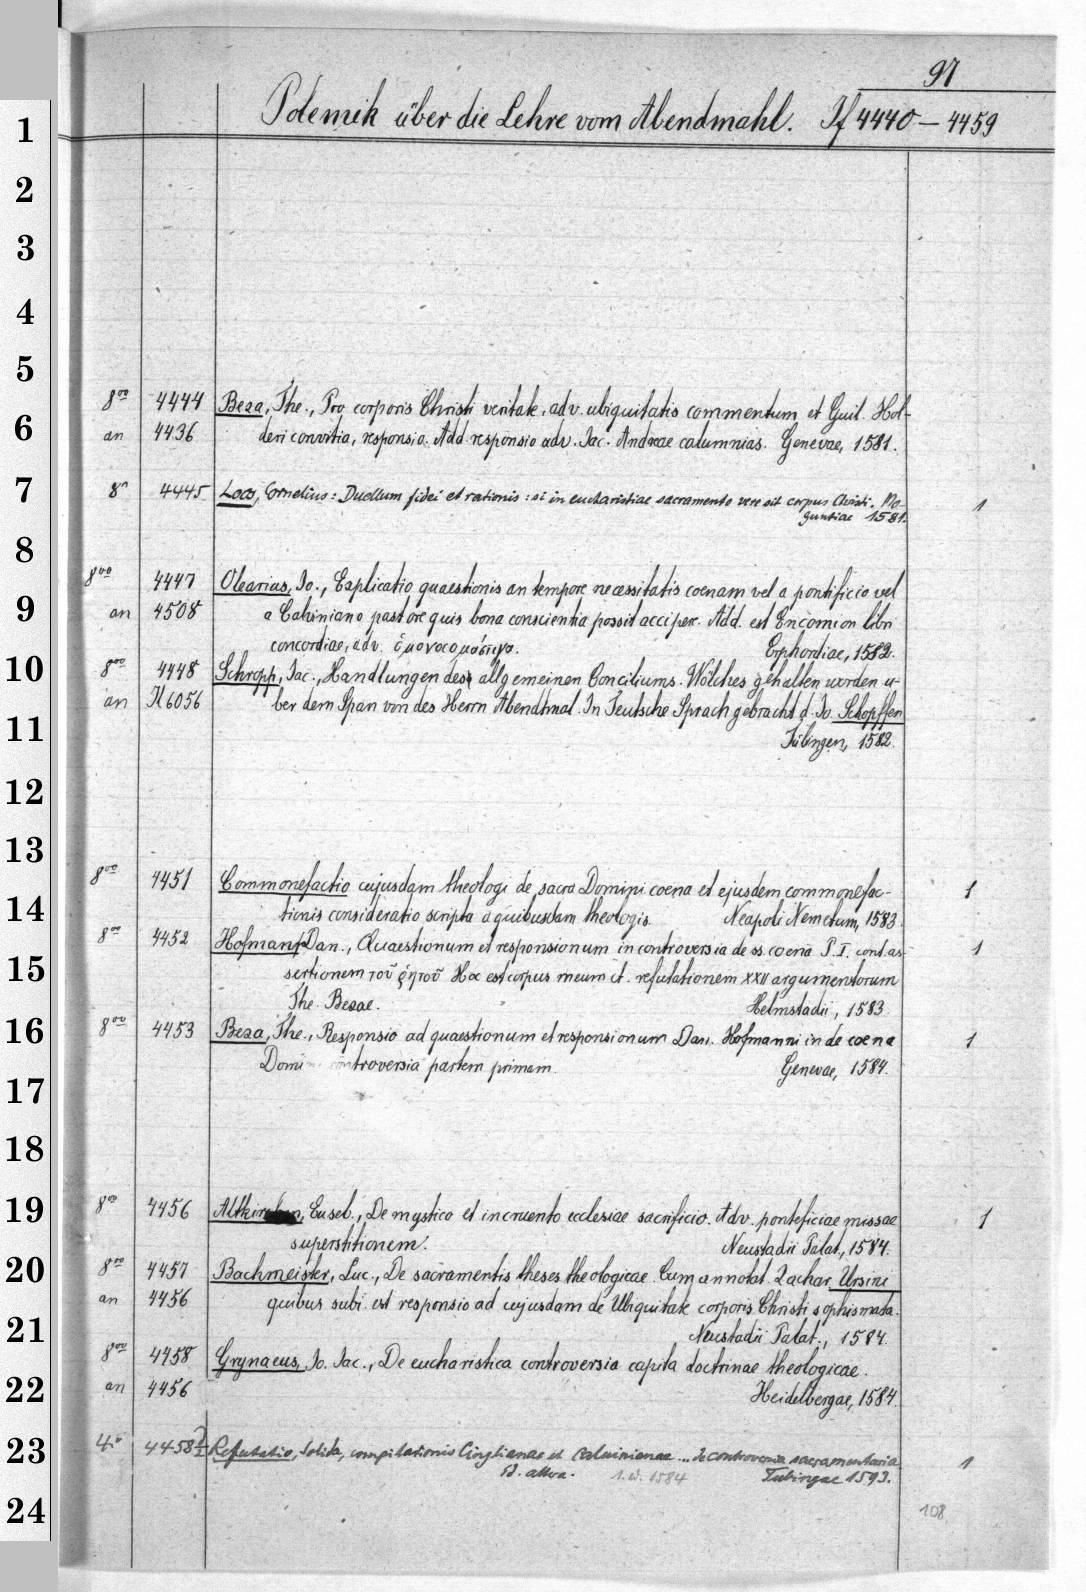 97
Polemik über die Lehre vom Abendmahl. If 4440 — 4459
8vo 4444 Beza, The., Pro corporis Christi veritate, adv. ubiquitatis commentum et Guil. Hol-
an 4436 deri convitia, responsio. Add. responsio adv. Jac. Andreae calumnias. Genevae, 1581.
8° 4445 Loos, Cornelius: Duellum fidei et rationis: si in eucharistiae sacramento vere sit corpus Christi. Mo-
guntiae 1581. 1
8vo 4447 Olearius, Jo., Explicatio quaestionis an tempore necessitatis coenam vel a pontificio vel
an 4508 a Calviniano pastore quis bona conscientia possit accipere. Add. est Encomion libri
concordiae, adv. Erphordiae, 1582.
8vo 4448 Schropp, Jac., Handlungen des allgemeinen Conciliums. Wölches gehalten worden ü-
an Il 6056 ber dem Span von des Herrn Abendtmal. In Teutsche Sprach gebracht d. Jo. Schopffen
Tübingen, 1582.
8vo 4451 Commonefactio cujusdam theologi de sacra Domini coena et ejusdem commonefac-
tionis consideratio scripta a quibusdam theologis. Neapoli Nemetum, 1583 1
8vo 4452 Hofmann, Dan., Quaestionum et responsionum in controversia de ss. coena P. I. cont. as-
sertionem τοῦ ῥητοῦ Hoc est corpus meum et refutationem XXII argumentorum
The. Bezae. Helmstadii, 1583 1
8vo 4453 Beza, The., Responsio ad quaestionum et responsionum Dan. Hofmanni in de coena
Domi controversia partem primam. Genevae, 1584. 1
8vo 4456 Altkirchen, Euseb., De mystico et incruento ecclesiae sacrificio. Adv. pontificiae missae
superstitionem. Neustadii Palat., 1584. 1
8vo 4457 Bachmeister, Luc., De sacramentis theses theologicae. Cum annotat. Zachar. Ursini
an 4456 quibus subi. est responsio ad cujusdam de Ubiquitate corporis Christi sophismata.
Neustadii Palat., 1584.
8vo 4458 Grynaeus, Jo. Jac., De eucharistica controversia capita doctrinae theologicae.
an 4456 Heidelbergae, 1584.
4° 4458 Refutatio, solida, compilationis Cinglianae et Calvinianae ... de controversia sacramentaria
Ed. altera. 1. ed. 1584 Tubingae 1593. 1
108
1
2
3
4
5
6
7
8
9
10
11
12
13
14
15
16
17
18
19
20
21
22
23
24